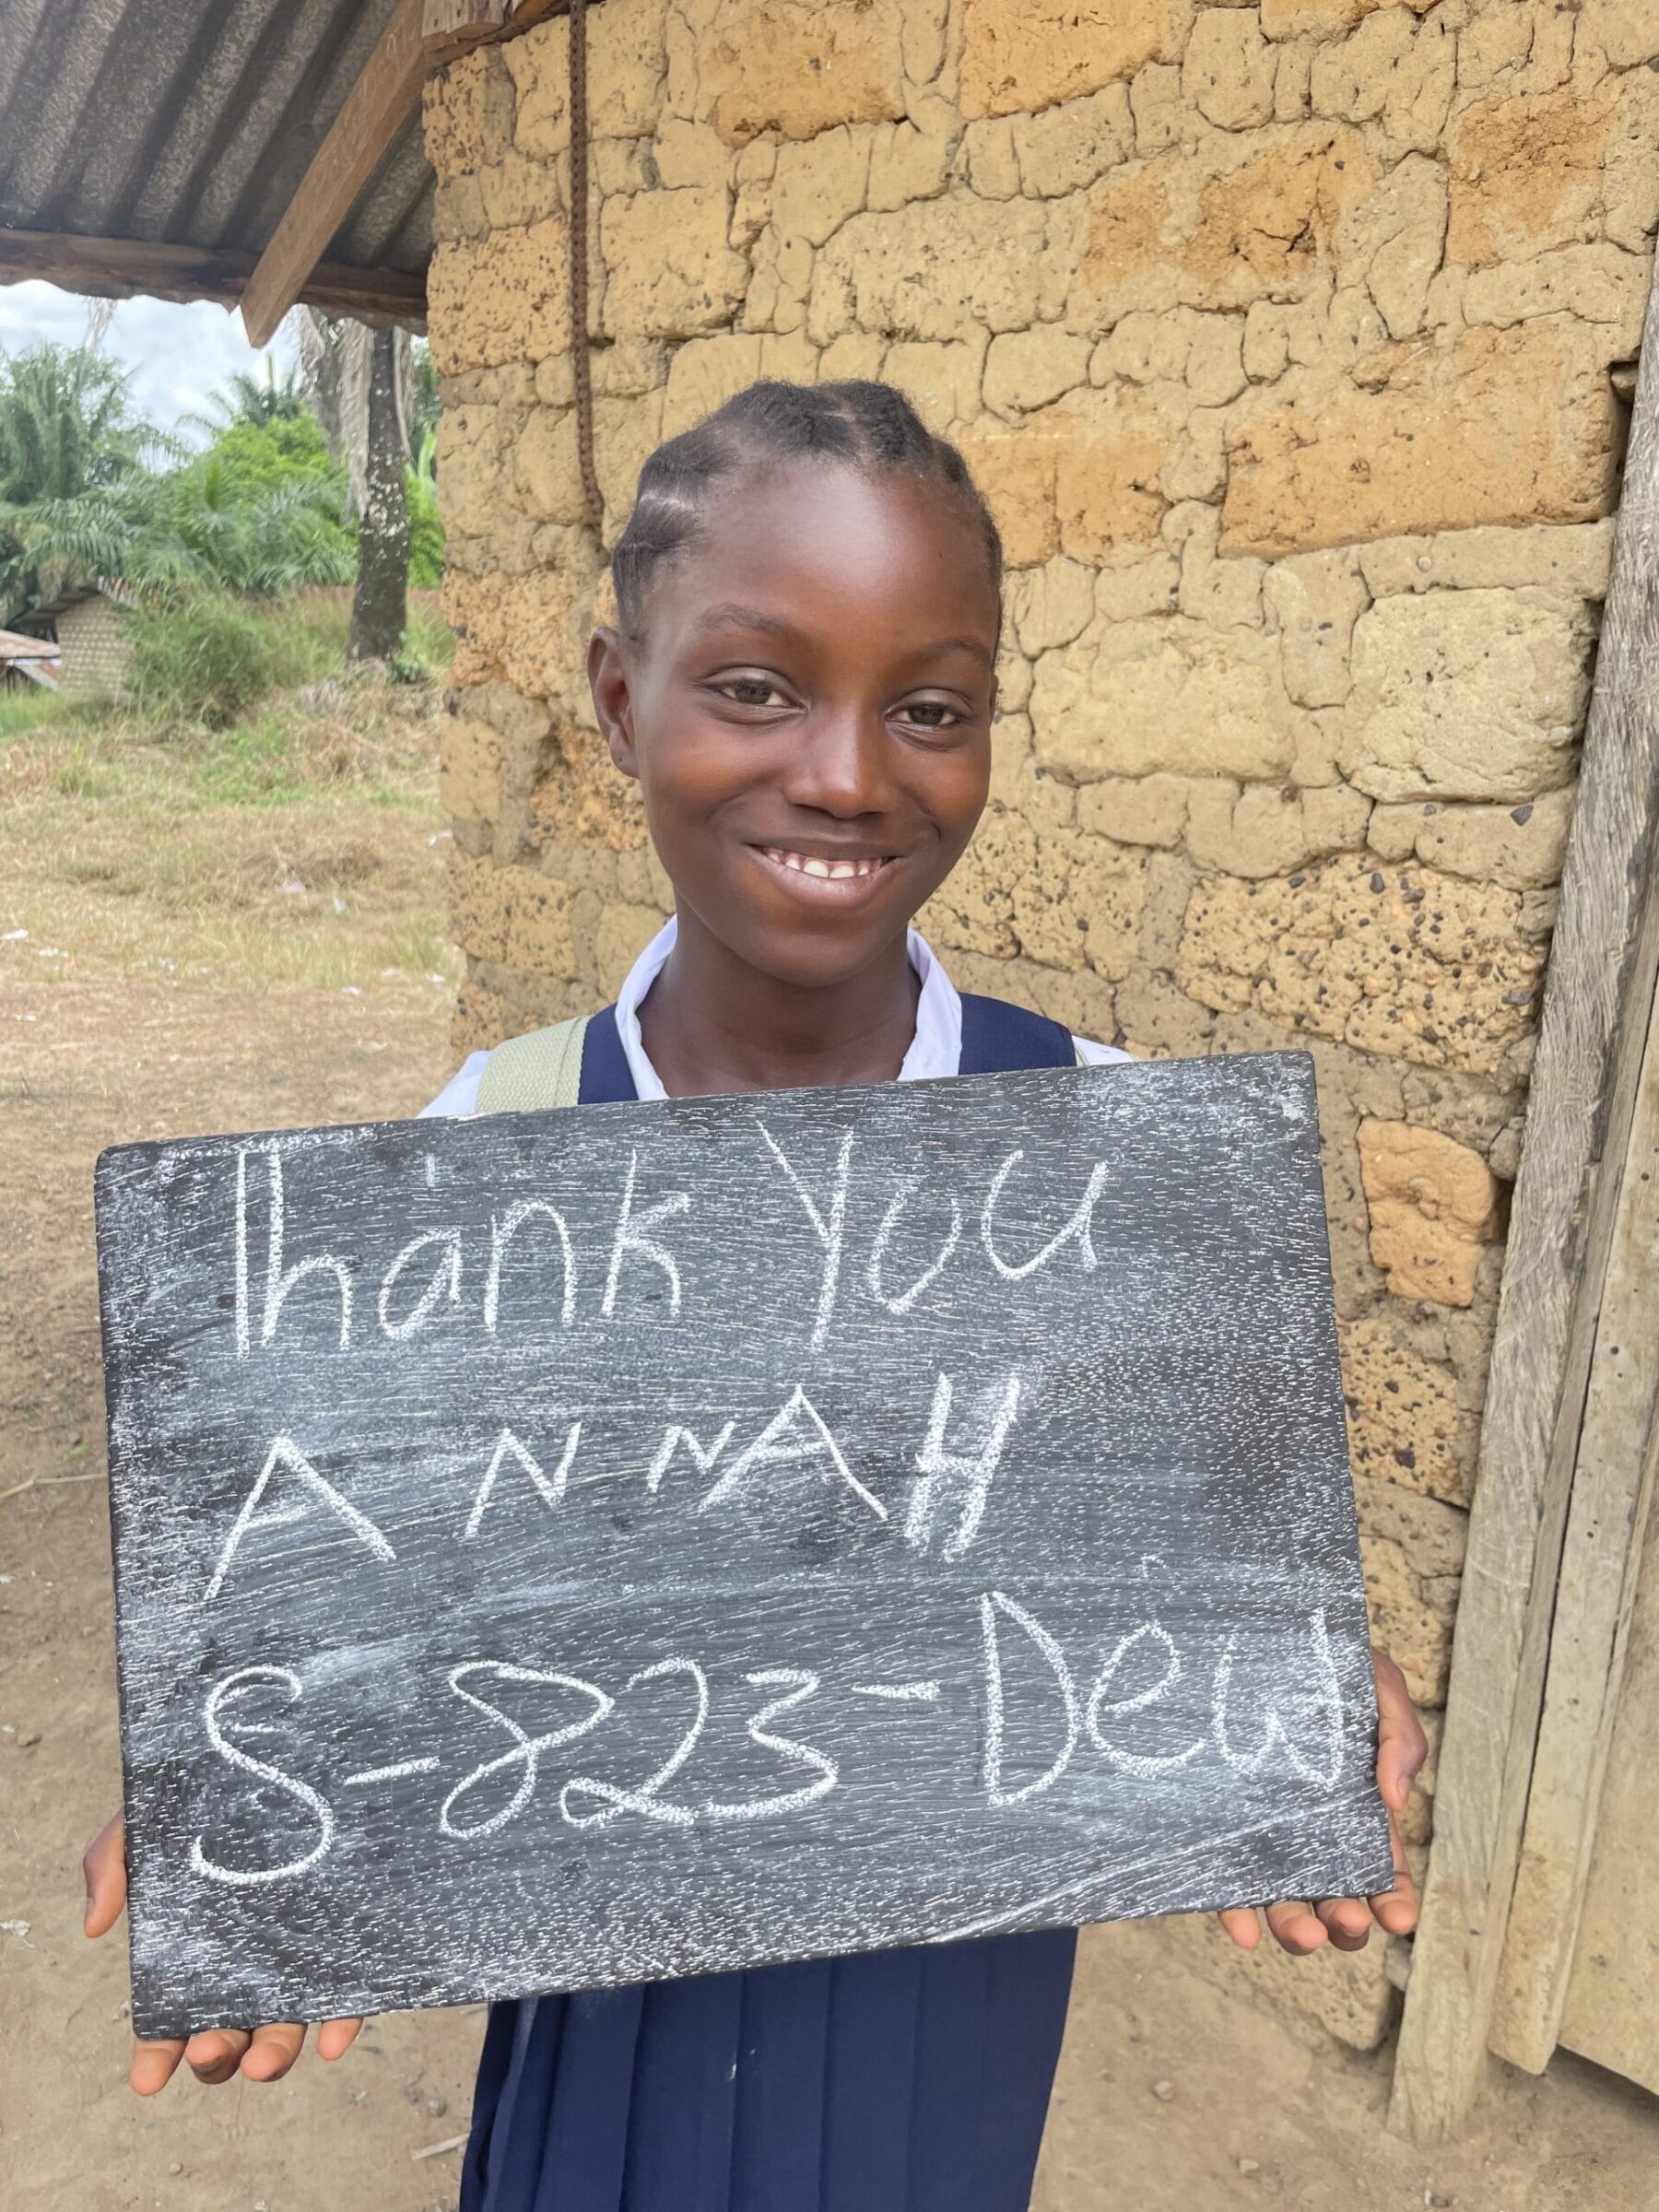 Thank You
ANNAH
S-823-Dew